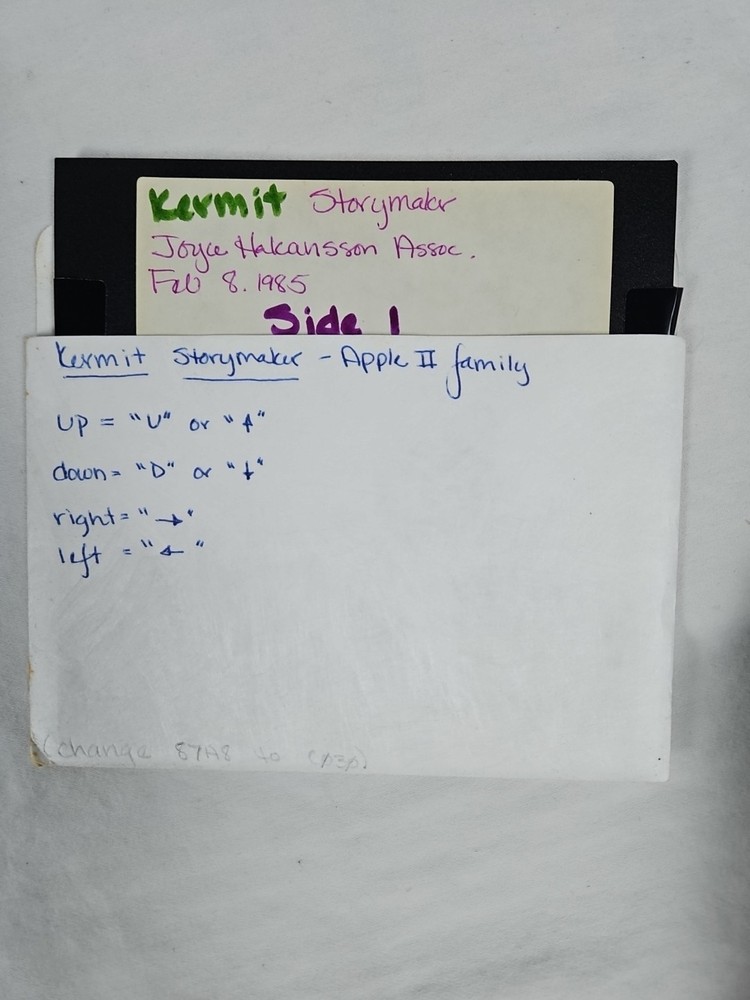 Kermit Storymaker
Joyce Hakansson Assoc.
Feb 8. 1985
Side 1
Kermit Storymaker - Apple II family
up = "U" or "↑"
down = "D" or "↓"
right = "→"
left = "←"
(change 87A8 to